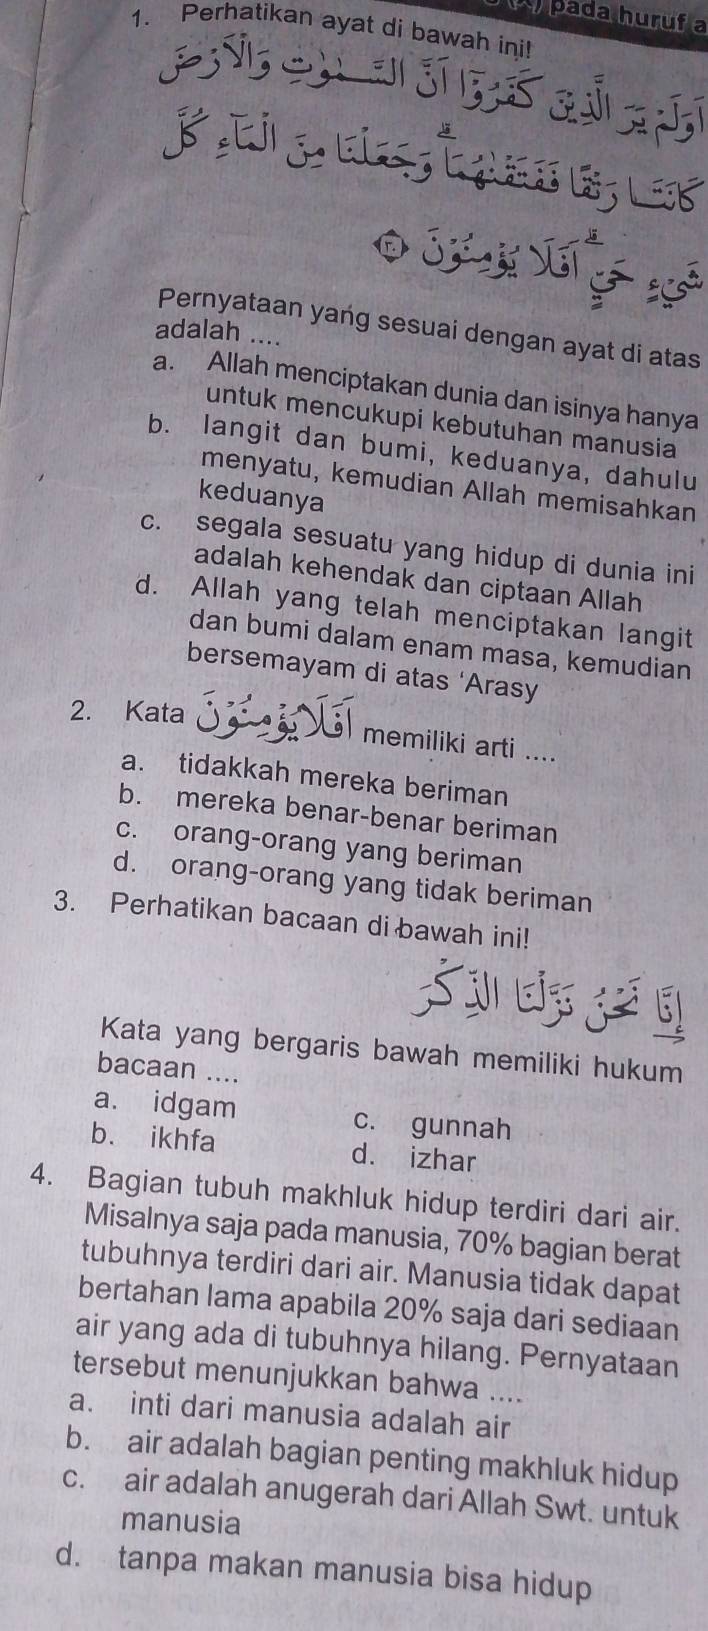 (X) pada huruf a
1. Perhatikan ayat di bawah ini!
اَوَلَمْ يَرَ الَّذِيْنَ كَفَرُوْٓا اَنَّ السَّمٰوٰتِ وَالْاَرْضَ
كَانَتَا رَتْقًا فَفَتَقْنٰهُمَاۗ وَجَعَلْنَا مِنَ الْمَاۤءِ كُلَّ
شَيْءٍ حَيٍّۗ اَفَلَا يُؤْمِنُوْنَ ۝٣٠
Pernyataan yang sesuai dengan ayat di atas
adalah ....
a. Allah menciptakan dunia dan isinya hanya
untuk mencukupi kebutuhan manusia
b. langit dan bumi, keduanya, dahulu
menyatu, kemudian Allah memisahkan
keduanya
c. segala sesuatu yang hidup di dunia ini
adalah kehendak dan ciptaan Allah
d. Allah yang telah menciptakan langit
dan bumi dalam enam masa, kemudian
bersemayam di atas ‘Arasy
2. Kata اَفَلَا يُؤْمِنُوْنَ memiliki arti ....
a. tidakkah mereka beriman
b. mereka benar-benar beriman
c. orang-orang yang beriman
d. orang-orang yang tidak beriman
3. Perhatikan bacaan di bawah ini!
اِنَّا نَحْنُ نَزَّلْنَا الذِّكْرَ
Kata yang bergaris bawah memiliki hukum
bacaan ....
a. idgam c. gunnah
b. ikhfa d. izhar
4. Bagian tubuh makhluk hidup terdiri dari air.
Misalnya saja pada manusia, 70% bagian berat
tubuhnya terdiri dari air. Manusia tidak dapat
bertahan lama apabila 20% saja dari sediaan
air yang ada di tubuhnya hilang. Pernyataan
tersebut menunjukkan bahwa ....
a. inti dari manusia adalah air
b. air adalah bagian penting makhluk hidup
c. air adalah anugerah dari Allah Swt. untuk
manusia
d. tanpa makan manusia bisa hidup